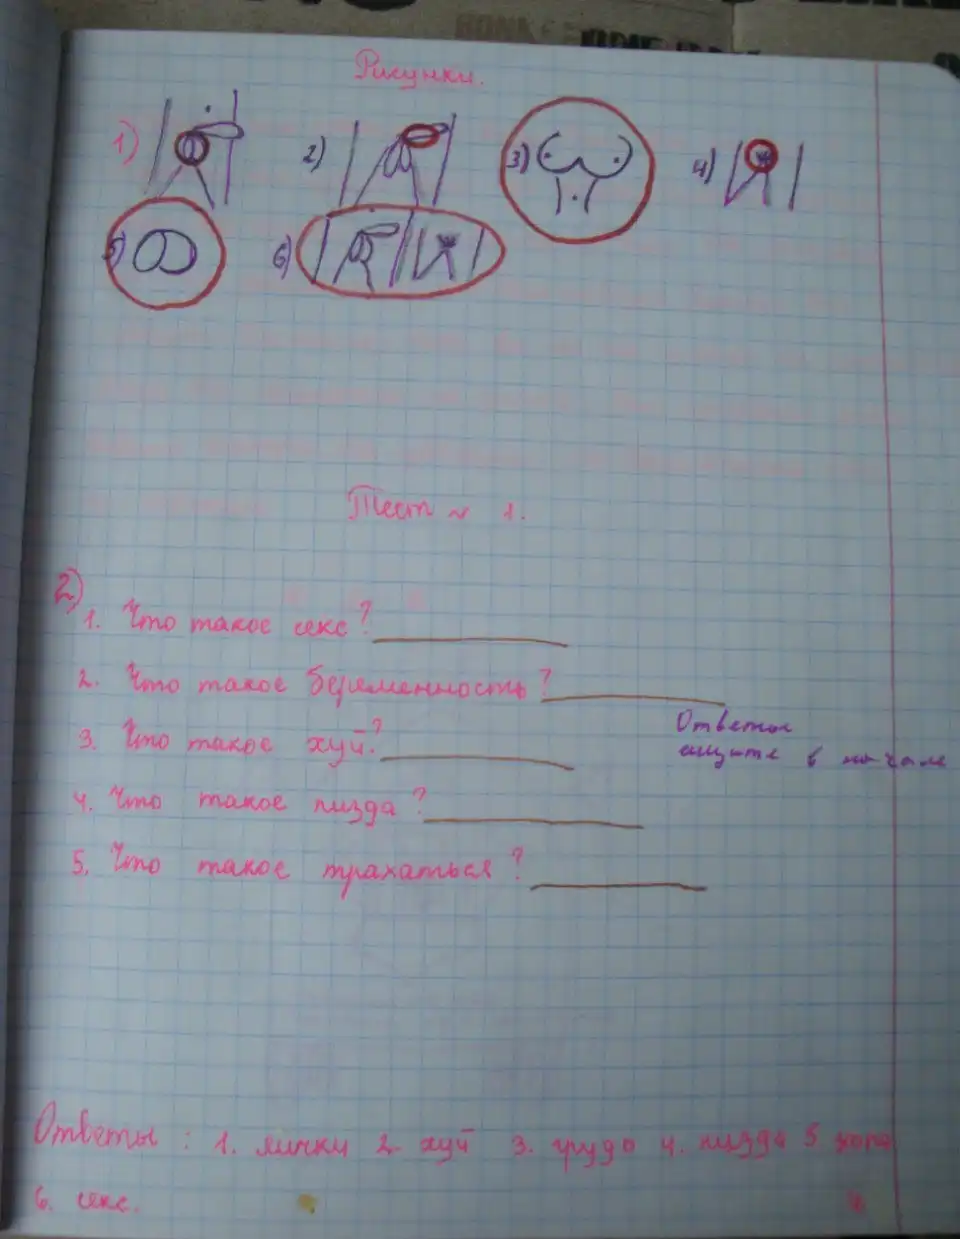 Рисунки.
1) 2) 3) 4)
5) 6)
Тест № 1.
2)
1. Что такое секс?
2. Что такое беременность?
3. Что такое хуй?
Ответы
ищите в начале
4. Что такое пизда?
5. Что такое трахаться?
Ответы: 1. яички 2. хуй 3. грудь 4. пизда 5 жопа
6. секс.